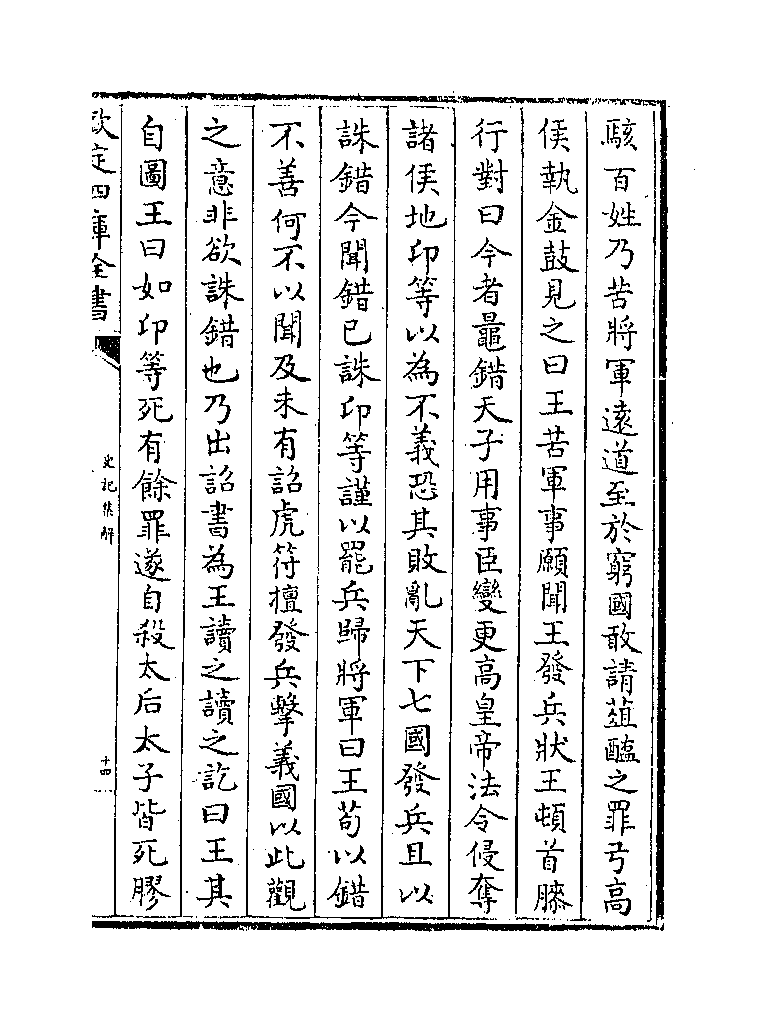 駭百姓乃苦將軍逺道至於窮國敢請葅醢之罪弓高
侯執金鼓見之曰王苦軍事願聞王發兵狀王頓首膝
行對曰今者鼂錯天子用事臣變更高皇帝法令侵奪
諸侯地卬等以為不義恐其敗亂天下七國發兵且以
誅錯今聞錯已誅卬等謹以罷兵歸將軍曰王茍以錯
不善何不以聞及未有詔虎符擅發兵擊義國以此觀
之意非欲誅錯也乃出詔書為王讀之讀之訖曰王其
自圖王曰如卬等死有餘罪遂自殺太后太子皆死膠
欽定四庫全書
史記集解
十四